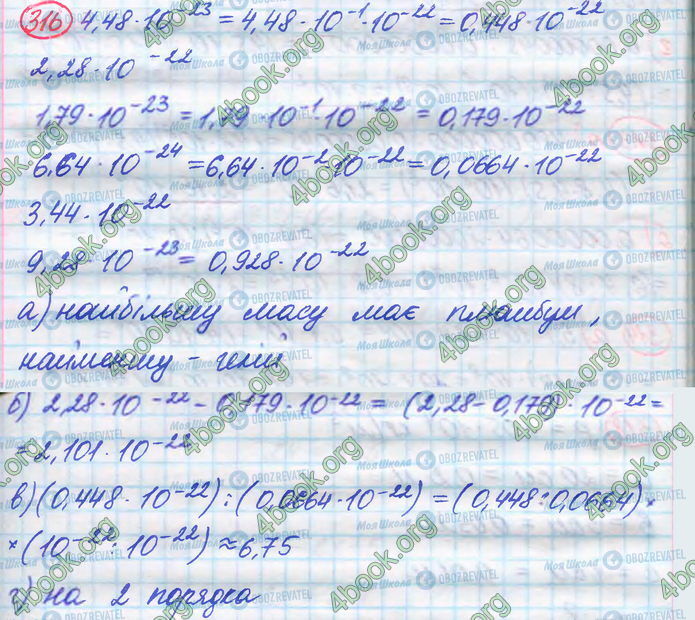 316 4,48·10⁻²³ = 4,48·10⁻¹·10⁻²² = 0,448·10⁻²²
2,28·10⁻²²
1,79·10⁻²³ = 1,79·10⁻¹·10⁻²² = 0,179·10⁻²²
6,64·10⁻²⁴ = 6,64·10⁻²·10⁻²² = 0,0664·10⁻²²
3,44·10⁻²²
9,28·10⁻²³ = 0,928·10⁻²²
а) найбільшу масу має плюмбум,
найменшу - гелій
б) 2,28·10⁻²² - 0,179·10⁻²² = (2,28-0,179)·10⁻²² =
= 2,101·10⁻²²
в) (0,448·10⁻²²):(0,0664·10⁻²²) = (0,448:0,0664)×
×(10⁻²²:10⁻²²) ≈ 6,75
г) на 2 порядка
4book.org
Моя Школа
OBOZREVATEL